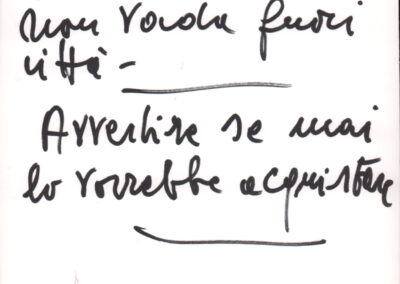 non vada fuori
città -
Avvertire se mai
lo vorrebbe acquistare